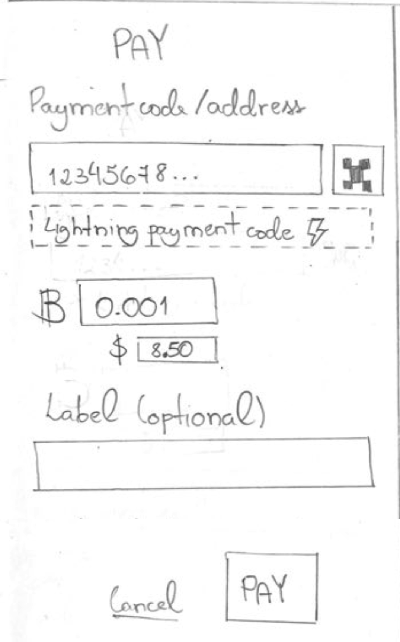 PAY
Payment code/address
12345678...
Lightning payment code
₿ 0.001
$ 8.50
Label (optional)
Cancel PAY